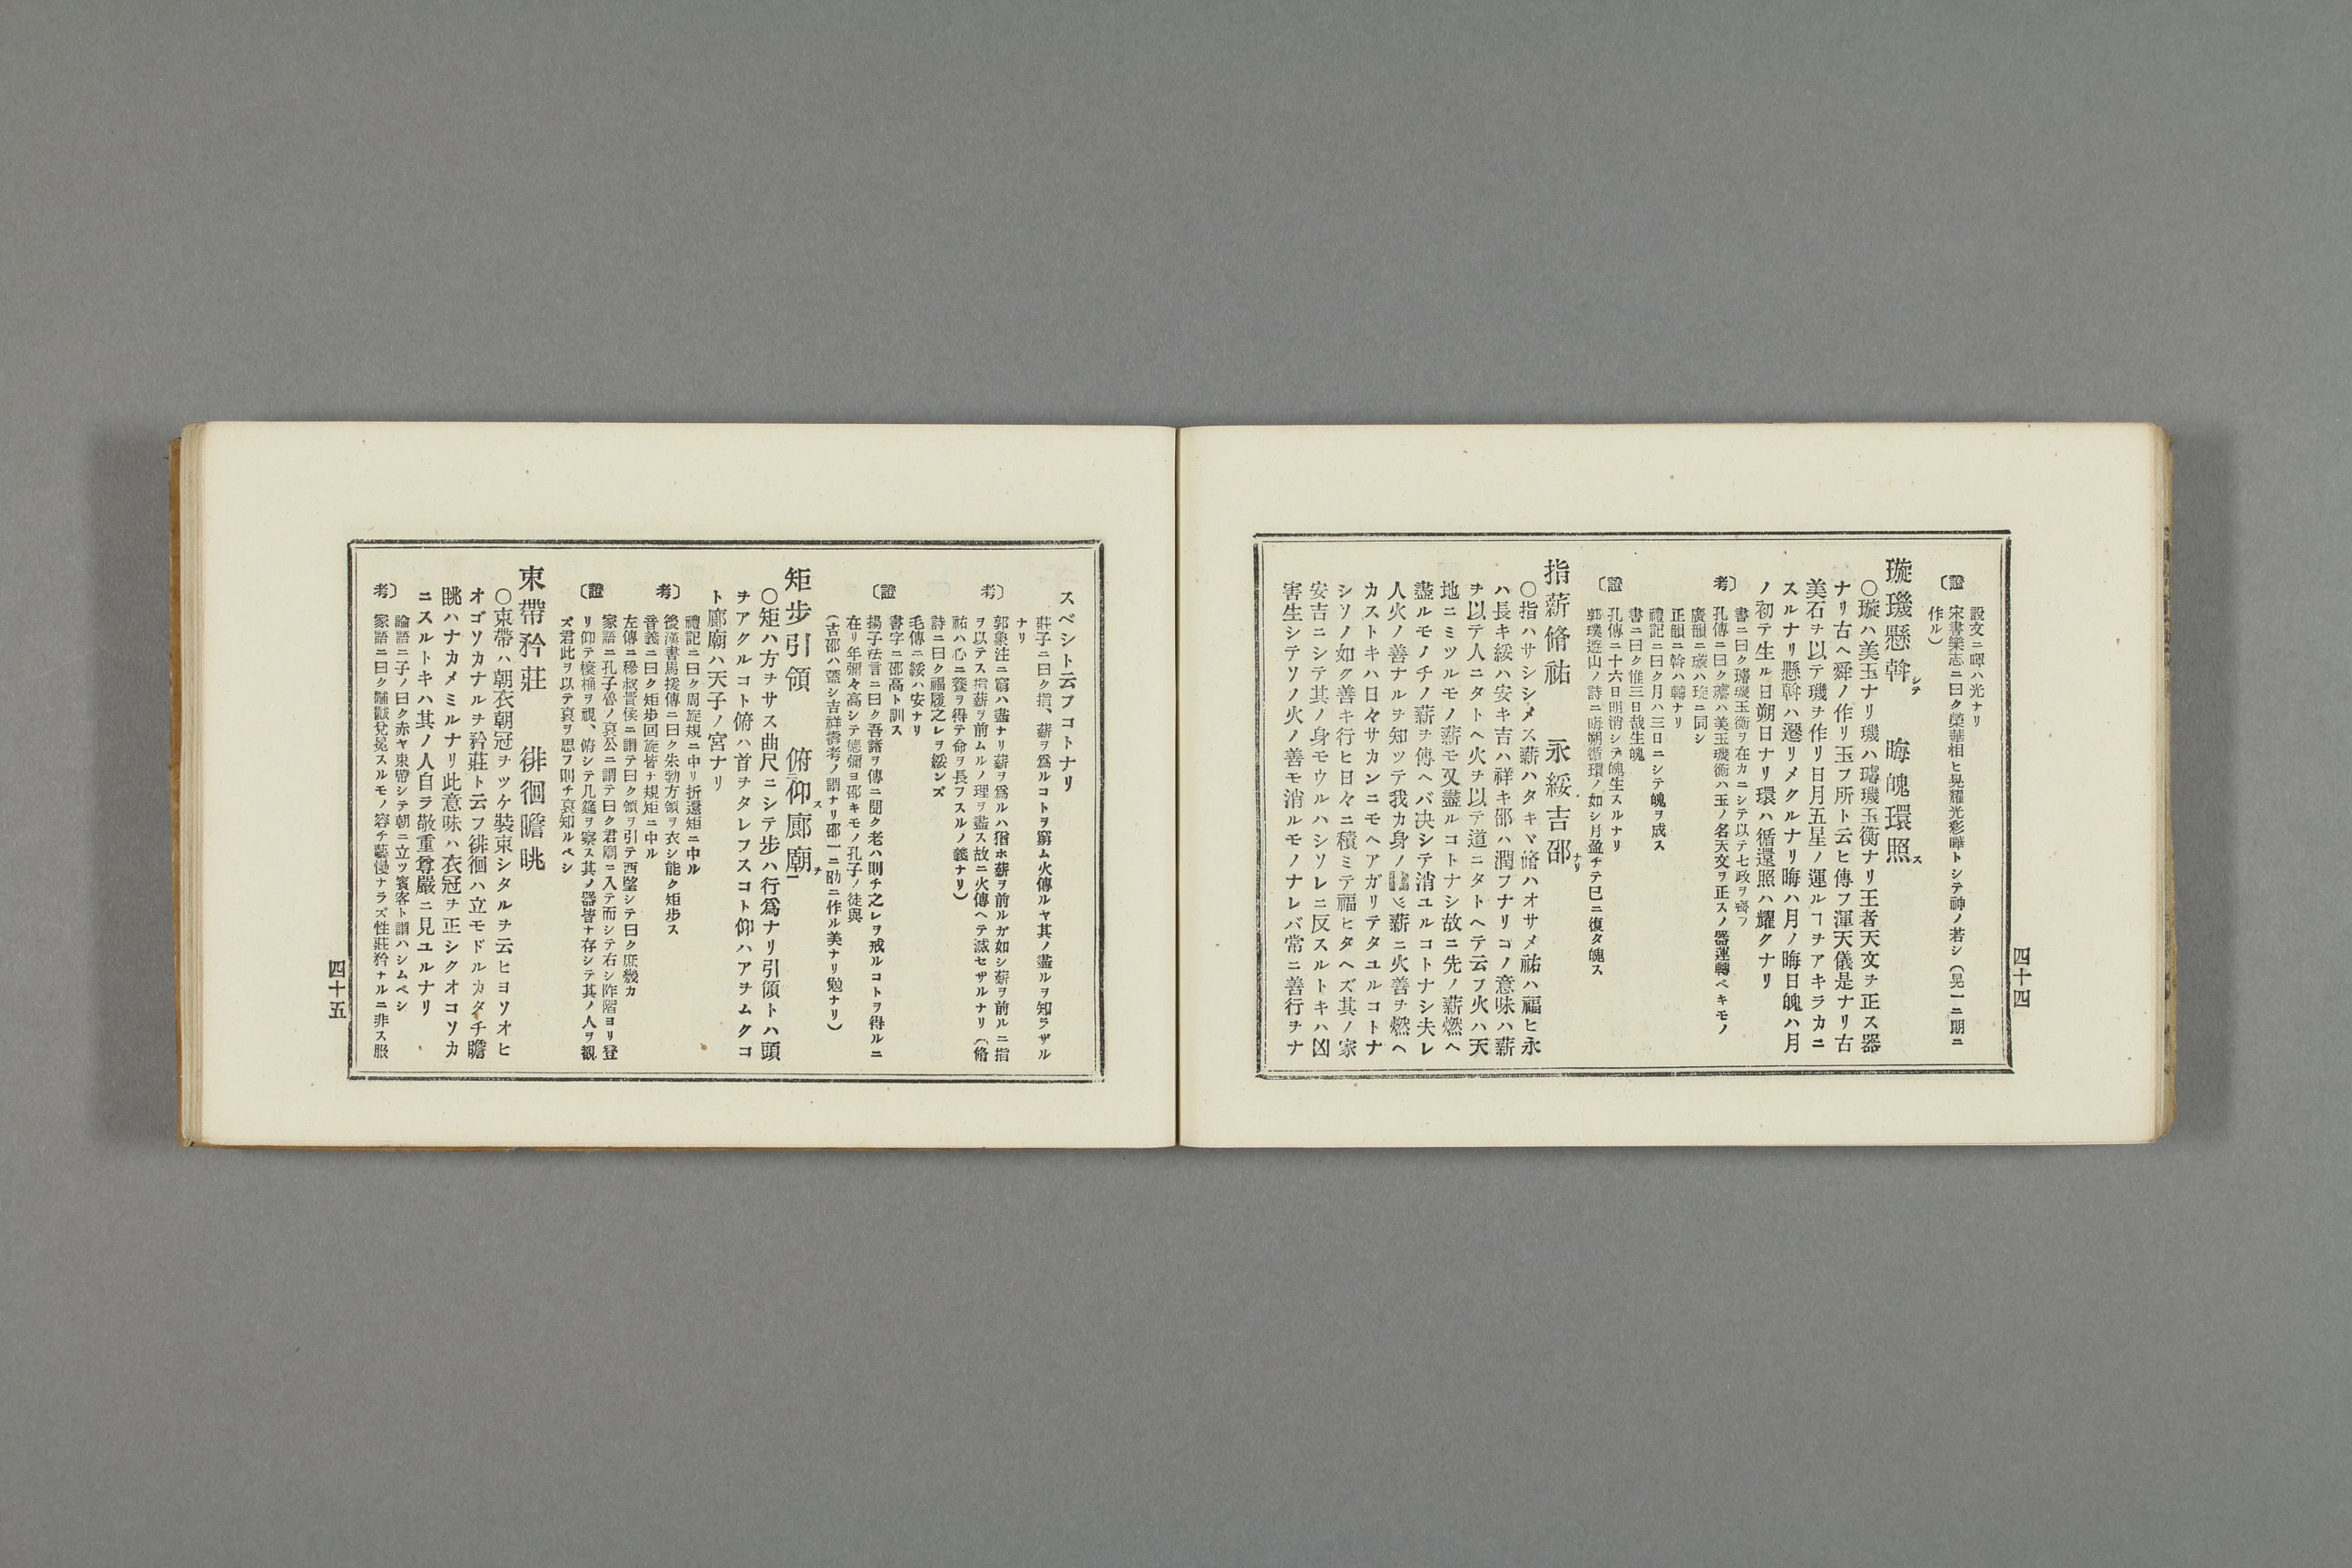 四十四
説文ニ暉ハ光ナリ
〔證 宋書樂志ニ曰ク榮華相ヒ晃耀光彩曄トシテ神ノ若シ(晃一ニ期ニ
作ル)
璇璣懸斡シテ 晦魄環照ス
〇璇ハ美玉ナリ璣ハ璿璣玉衡ナリ王者天文ヲ正ス器
ナリ古ヘ舜ノ作リ玉フ所ト云ヒ傳フ渾天儀是ナリ古
美石ヲ以テ璣ヲ作リ日月五星ノ運ルヿヲアキラカニ
スルナリ懸斡ハ遷リメクルナリ晦ハ月ノ晦日魄ハ月
ノ初テ生ル日朔日ナリ環ハ循還照ハ耀クナリ
書ニ曰ク璿璣玉衡ヲ在カニシテ以テ七政ヲ齊フ
考〕 孔傳ニ曰ク璿ハ美玉璣衡ハ玉ノ名天文ヲ正スノ器運轉ベキモノ
廣韻ニ璇ハ琁ニ同シ
正韻ニ斡ハ轉ナリ
禮記ニ曰ク月ハ三日ニシテ魄ヲ成ス
書ニ曰ク惟三日哉生魄
孔傳ニ十六日明消シテ魄生スルナリ
〔證 郭璞遊山ノ詩ニ晦朔循環ノ如シ月盈チテ巳ニ復タ魄ス
指薪脩祐 永綏吉邵ナリ
〇指ハサシシメス薪ハタキヾ脩ハオサメ祐ハ福ヒ永
ハ長キ綏ハ安キ吉ハ祥キ邵ハ潤フナリコノ意味ハ薪
ヲ以テ人ニタトヘ火ヲ以テ道ニタトヘテ云フ火ハ天
地ニミツルモノ薪モ又盡ルコトナシ故ニ先ノ薪燃ヘ
盡ルモノチノ薪ヲ傳ヘバ决シテ消ユルコトナシ夫レ
人火ノ善ナルヲ知ツテ我カ身ノ薪ニ火善ヲ燃ヘ
カストキハ日々サカンニモヘアガリテタユルコトナ
シソノ如ク善キ行ヒ日々ニ積ミテ福ヒタヘズ其ノ家
安吉ニシテ其ノ身モウルハシソレニ反スルトキハ凶
害生シテソノ火ノ善モ消ルモノナレバ常ニ善行ヲナ
スベシト云フコトナリ
莊子ニ曰ク指、薪ヲ爲ルコトヲ窮ム火傳ルヤ其ノ盡ルヲ知ラザル
ナリ
考〕 郭象注ニ窮ハ盡ナリ薪ヲ爲ルハ猶ホ薪ヲ前ルガ如シ薪ヲ前ルニ指
ヲ以テス指薪ヲ前ムルノ理ヲ盡ス故ニ火傳ヘテ滅セザルナリ(脩
祐ハ心ニ養ヲ得テ命ヲ長フスルノ義ナリ)
詩ニ曰ク福履之レヲ綏ンズ
毛傳ニ綏ハ安ナリ
書字ニ邵高ト訓ス
〔證 揚子法言ニ曰ク吾諸ヲ傳ニ聞ク老ハ則チ之レヲ戒ルコトヲ得ルニ
在リ年彌々高シテ德彌ヨ邵キモノ孔子ノ徒與
(吉邵ハ蓋シ吉祥壽考ノ謂ナリ邵一ニ劭ニ作ル美ナリ勉ナリ)
矩步引領 俯仰廊廟
〇矩ハ方ヲサス曲尺ニシテ步ハ行爲ナリ引領トハ頭
ヲアクルコト俯ハ首ヲタレフスコト仰ハアヲムクコ
ト廊廟ハ天子ノ宮ナリ
禮記ニ曰ク周旋規ニ中リ折還矩ニ中ル
考〕 後漢書馬援傳ニ曰ク朱勃方領ヲ衣シ能ク矩步ス
音義ニ曰ク矩步回旋皆ナ規矩ニ中ル
左傳ニ穆叔晋侯ニ謂テ曰ク領ヲ引テ西望シテ曰ク庶幾カ
家語ニ孔子魯ノ哀公ニ謂テ曰ク君廟ニ入テ而シテ右シ阼階ヨリ登
〔證 リ仰テ榱桷ヲ視、俯シテ几筵ヲ察ス其ノ器皆ナ存シテ其ノ人ヲ覩
ズ君此ヲ以テ哀ヲ思フ則チ哀知ルベシ
束帶矜莊 徘徊瞻眺
〇束帶ハ朝衣朝冠ヲツケ裝束シタルヲ云ヒヨソオヒ
オゴソカナルヲ矜莊ト云フ徘徊ハ立モドルカタチ瞻
眺ハナカメミルナリ此意味ハ衣冠ヲ正シクオコソカ
ニスルトキハ其ノ人自ラ敬重尊嚴ニ見ユルナリ
論語ニ子ノ曰ク赤ヤ束帶シテ朝ニ立ツ賓客ト謂ハシムベシ
考〕 家語ニ曰ク黼黻兗冕スルモノ容チ褻慢ナラズ性莊矜ナルニ非ス服
四十五